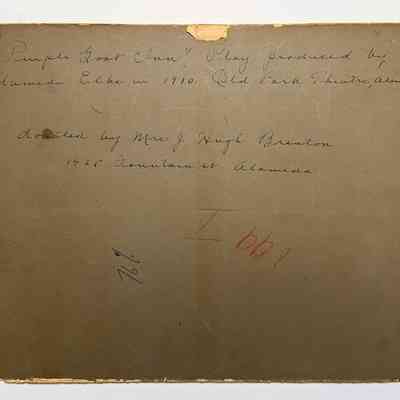 Purple Goat Play produced by
Alameda Elks in 1910. Old Park Theatre, Alam
donated by Mrs J. Hugh Brenton
Fountain st Alameda
I